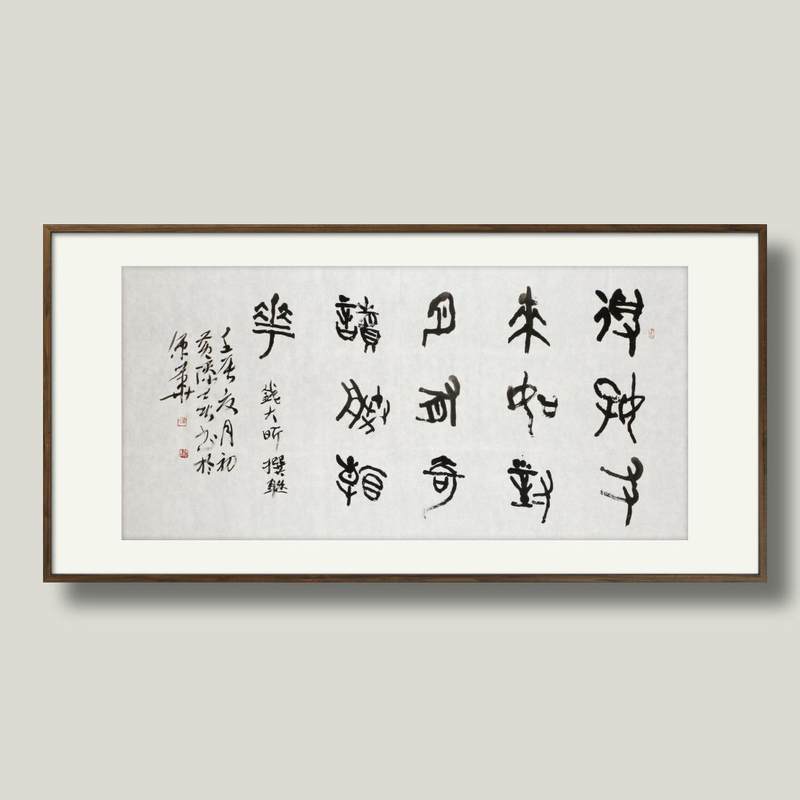 得好友
來如對
月有奇
讀勝看
花
錢大昕撰聯
壬辰夏月初
書於